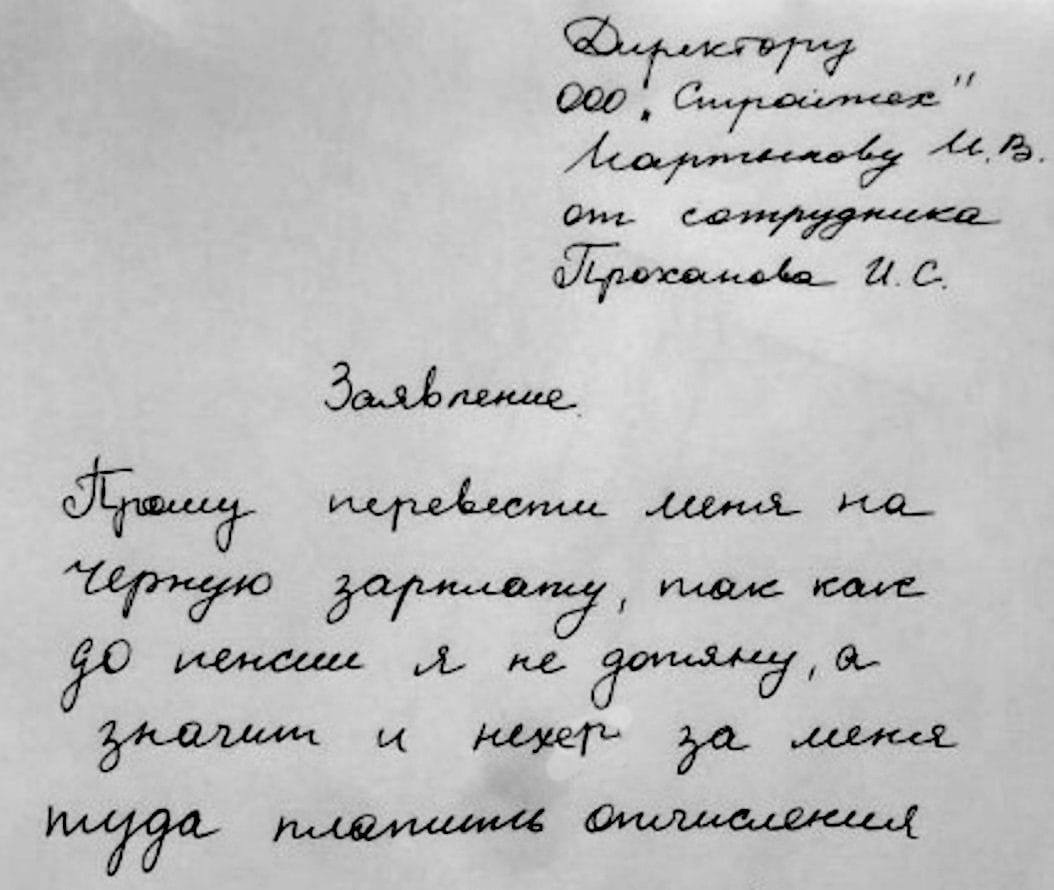 Директору
ООО "Стройтех"
Мартынову И.В.
от сотрудника
Проханова И.С.
Заявление
Прошу перевести меня на
черную зарплату, так как
до пенсии я не дотяну, а
значит и нехер за меня
туда платить отчисления